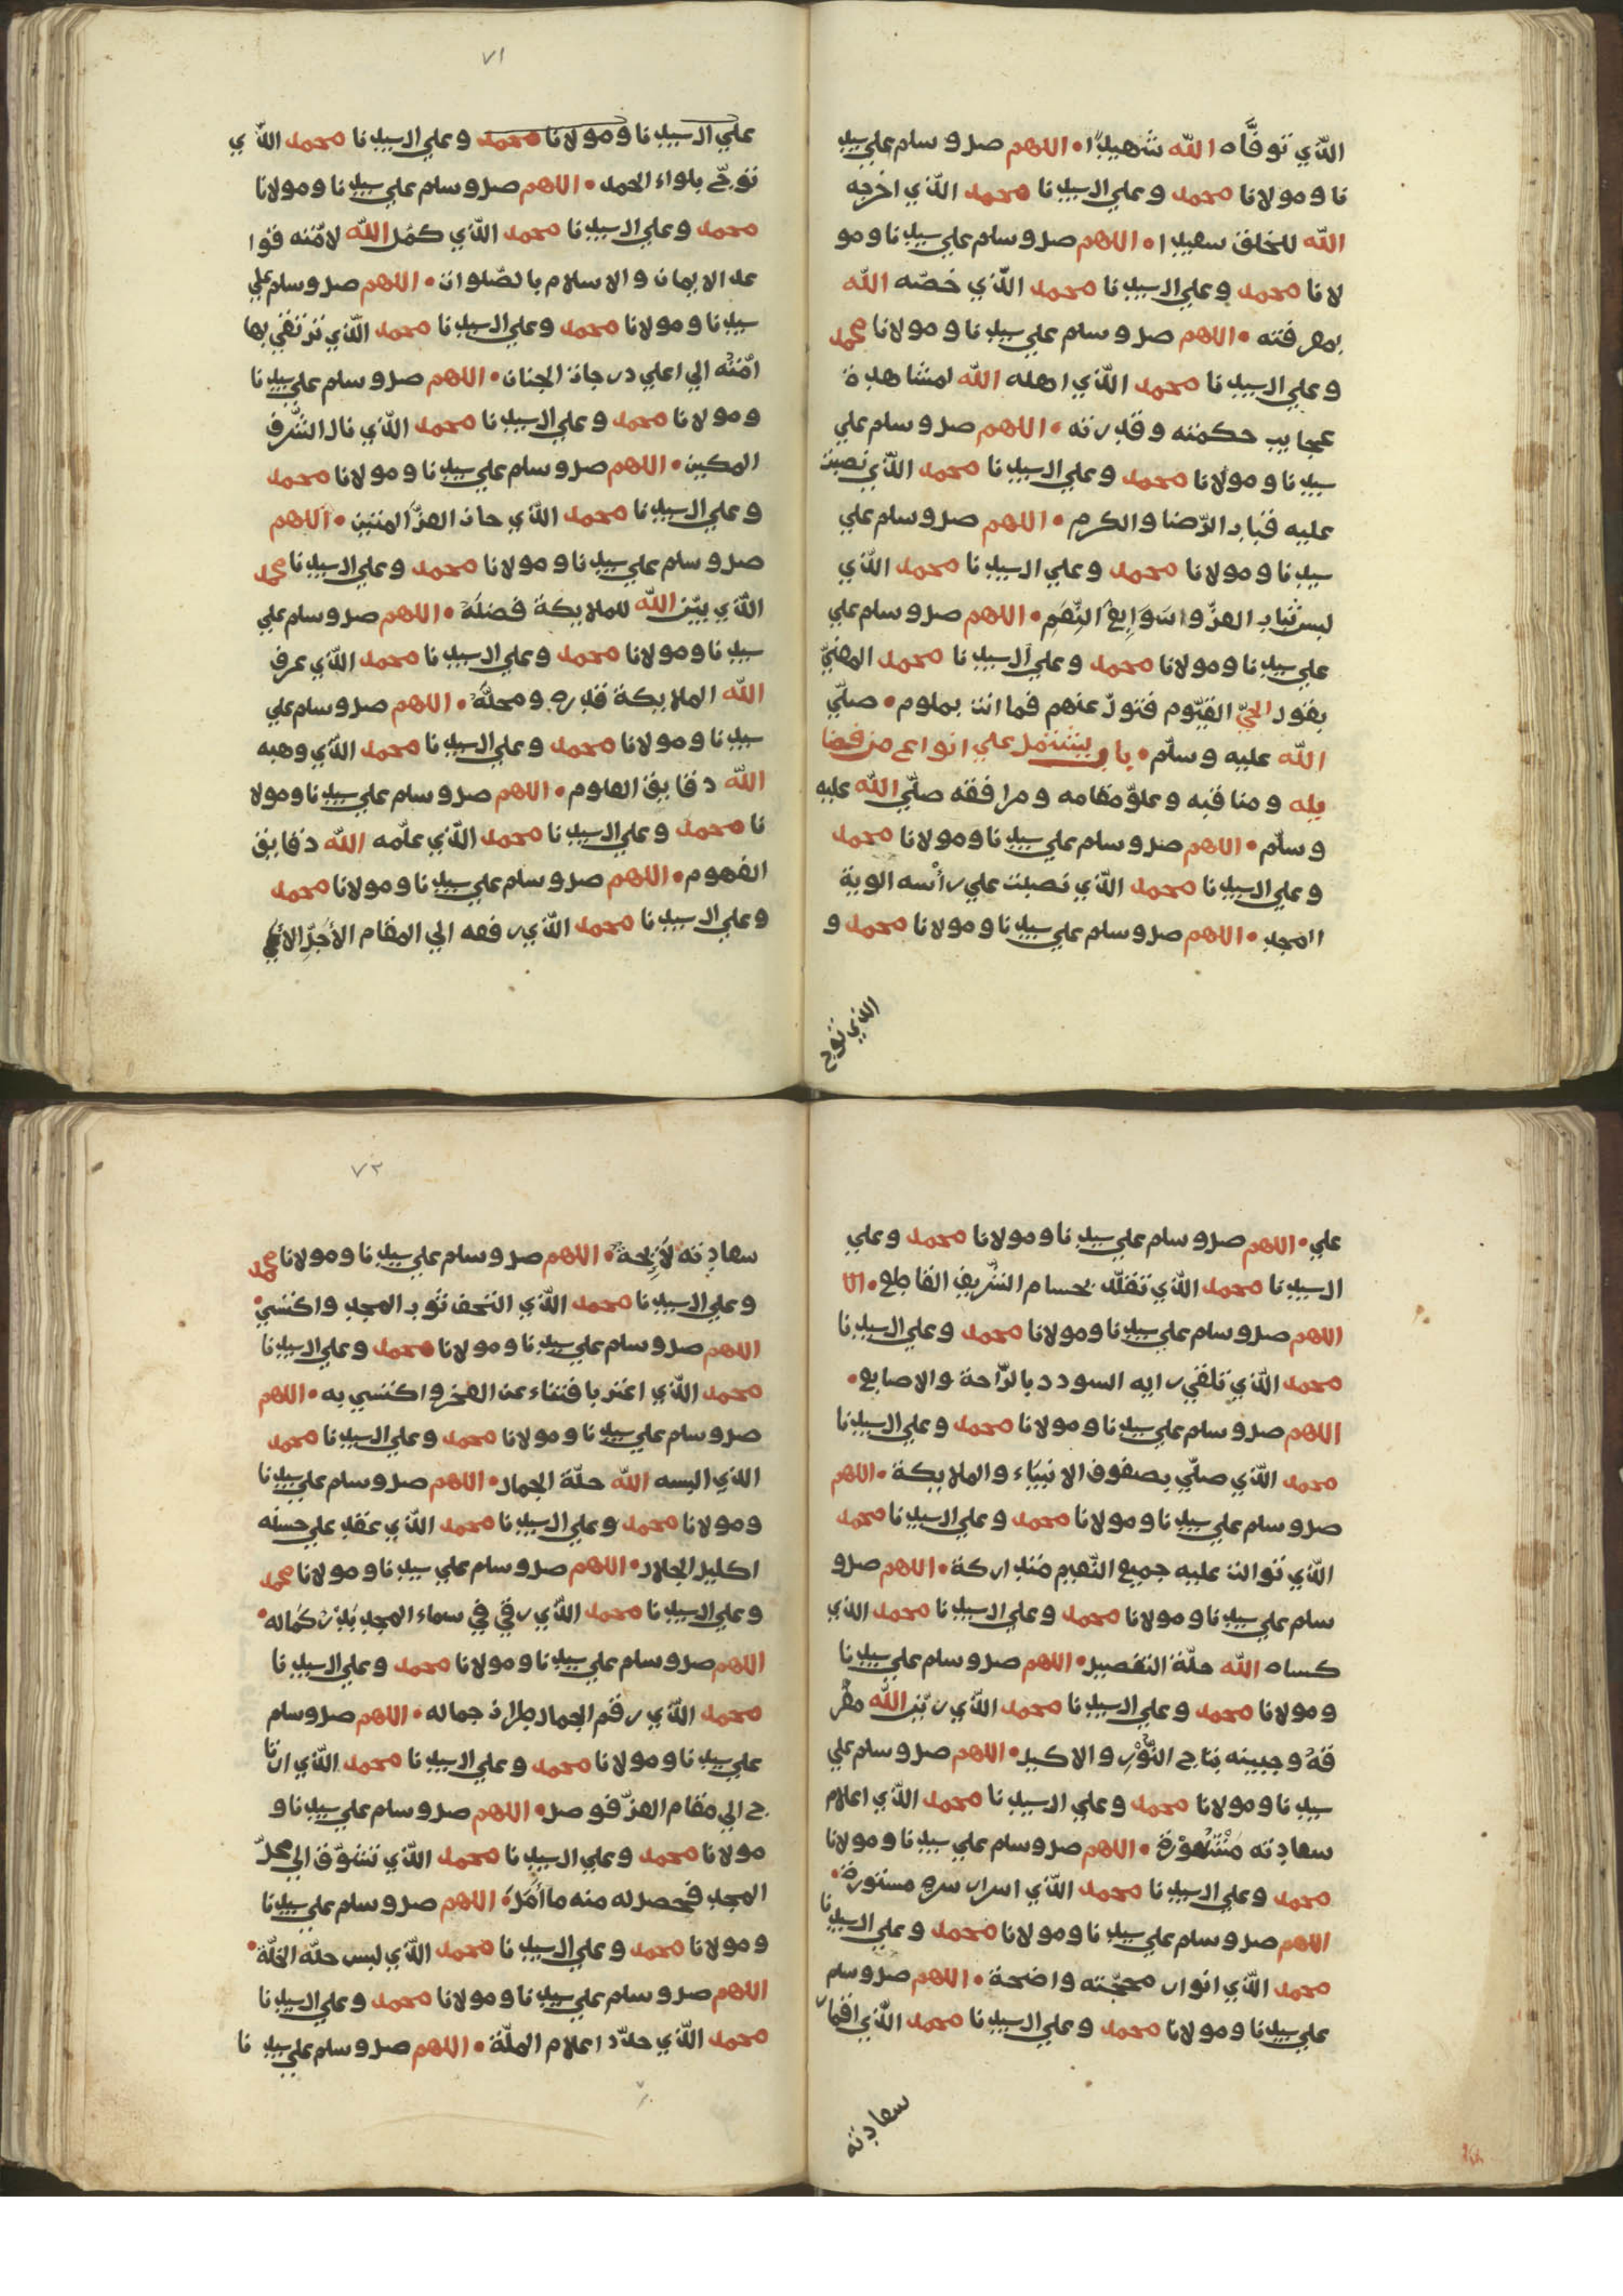 الذّي توفّاه الله شهيدًا • اللاهم صل و سلم علي سيد
نا و مولانا محمد و علي ال سيدنا محمد الذّي اخرجه
الله للخلق سعيدا • اللاهم صل و سلم علي سيدنا و مو
لانا محمد و علي ال سيدنا محمد الذّي خصّه الله
بمعرفته • اللاهم صل و سلم علي سيدنا و مولانا محمد
و علي ال سيدنا محمد الذّي اهله الله لمشاهدة
عجايب حكمته و قدرته • اللاهم صل و سلم علي
سيدنا و مولانا محمد و علي ال سيدنا محمد الذّي نصبت
عليه قباب الرّضا و الكرم • اللاهم صل و سلم علي
سيدنا و مولانا محمد و علي ال سيدنا محمد الذّي
لبس ثياب العزّ و اسَوَابِغَ النِّعَمِ • اللاهم صل و سلم علي
علي سيدنا و مولانا محمد و علي ال سيدنا محمد المعنيّ
بقول الحيّ القيّوم فتولّ عنهم فما انت بملوم • صلّي
الله عليه و سلّم • باب يشتمل علي انواع من فضا
يله و مناقبه و علوّ مقامه و مرافقه صلّي الله عليه
و سلّم • اللاهم صل و سلم علي سيدنا و مولانا محمد
و علي ال سيدنا محمد الذّي نصبت علي رأسه الوية
المجد • اللاهم صل و سلم علي سيدنا و مولانا محمد و
الذي توج
٧١
علي ال سيدنا و مولانا محمد و علي ال سيدنا محمد الذّي
توجّ بلواء الحمد • اللاهم صل و سلم علي سيدنا و مولانا
محمد و علي ال سيدنا محمد الذّي كمّل الله لامّته قوا
عد الايمان و الاسلام بالصّلوات • اللاهم صل و سلم علي
سيدنا و مولانا محمد و علي ال سيدنا محمد الذّي ترتقي بها
امّته الي اعلي درجات الجنان • اللاهم صل و سلم علي سيدنا
و مولانا محمد و علي ال سيدنا محمد الذّي نال الشّرف
المكين • اللاهم صل و سلم علي سيدنا و مولانا محمد
و علي ال سيدنا محمد الذّي حاز العزّ المتين • اللاهم
صل و سلم علي سيدنا و مولانا محمد و علي ال سيدنا محمد
الذّي بيّن الله للملايكة فضله • اللاهم صل و سلم علي
سيدنا و مولانا محمد و علي ال سيدنا محمد الذّي عرف
الله الملايكة قدره و محلّه • اللاهم صل و سلم علي
سيدنا و مولانا محمد و علي ال سيدنا محمد الذّي وهبه
الله دقايق العلوم • اللاهم صل و سلم علي سيدنا و مولا
نا محمد و علي ال سيدنا محمد الذّي علّمه الله دقايق
الفهوم • اللاهم صل و سلم علي سيدنا و مولانا محمد
و علي ال سيدنا محمد الذّي رفعه الي المقام الأجلّ
علي • اللاهم صل و سلم علي سيدنا و مولانا محمد و علي
ال سيدنا محمد الذّي تقلّد بحسام الشّريف القاطع •
اللاهم صل و سلم علي سيدنا و مولانا محمد و علي ال سيدنا
محمد الذّي تلقي رايه السودد بالرّاحة و الاصابع •
اللاهم صل و سلم علي سيدنا و مولانا محمد و علي ال سيدنا
محمد الذّي صلّي بصفوف الانبيَاء و الملايكة • اللاهم
صل و سلم علي سيدنا و مولانا محمد و علي ال سيدنا محمد
الذّي توالت عليه جميع النّعم متداركة • اللاهم صل و
سلم علي سيدنا و مولانا محمد و علي ال سيدنا محمد الذي
كساه الله حلّة التفصيل • اللاهم صل و سلم علي سيدنا
و مولانا محمد و علي ال سيدنا محمد الذّي زيّن الله مفر
قهُ و جبينه بتاج النّوْر و الاكيد • اللاهم صل و سلم علي
سيدنا و مولانا محمد و علي ال سيدنا محمد الذّي اعلام
سعادته مَشْهُوْرة • اللاهم صل و سلم علي سيدنا و مولانا
محمد و علي ال سيدنا محمد الذّي اسرار سره مستورة •
اللاهم صل و سلم علي سيدنا و مولانا محمد و علي ال سيدنا
محمد الذّي انوار محجّته واضحة • اللاهم صل و سلم
علي سيدنا و مولانا محمد و علي ال سيدنا محمد الذّي اقمار
سعادته
٧٢
سعادته لَايِحَةٌ • اللاهم صل و سلم علي سيدنا و مولانا محمد
و علي ال سيدنا محمد الذّي التحف ثوب المجد و اكتسي •
اللاهم صل و سلم علي سيدنا و مولانا محمد و علي ال سيدنا
محمد الذّي اعتز باقتناء عن الفخر و اكتسي به • اللاهم
صل و سلم علي سيدنا و مولانا محمد و علي ال سيدنا محمد
الذي البسه الله حلّة الجمال • اللاهم صل و سلم علي سيدنا
و مولانا محمد و علي ال سيدنا محمد الذّي عقد علي حسنه
اكليل الجلال • اللاهم صل و سلم علي سيدنا و مولانا محمد
و علي ال سيدنا محمد الذّي رقي في سماء المجد بَدْرُ كَماله •
اللاهم صل و سلم علي سيدنا و مولانا محمد و علي ال سيدنا
محمد الذّي رقم الجمال طراز جماله • اللاهم صل و سلم
علي سيدنا و مولانا محمد و علي ال سيدنا محمد الذّي ارتا
ح الي مقام العزّ فوصل • اللاهم صل و سلم علي سيدنا و
مولانا محمد و علي ال سيدنا محمد الذّي تشوّق الي محلّ
المجد فحصل له منه ما أَمَّلَ • اللاهم صل و سلم علي سيدنا
و مولانا محمد و علي ال سيدنا محمد الذّي لبس حلّه الخلّة •
اللاهم صل و سلم علي سيدنا و مولانا محمد و علي ال سيدنا
محمد الذّي حدّد اعلام الملّة • اللاهم صل و سلم علي سيد نا